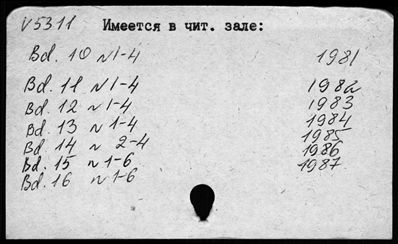 V5311 Имеется в чит. зале:
Bd. 10 N 1-4 1981
Bd. 11 N 1-4 1982
Bd. 12 N 1-4 1983
Bd. 13 N 1-4 1984
Bd. 14 N 2-4 1985
Bd. 15 N 1-6 1986
Bd. 16 N 1-6 1987